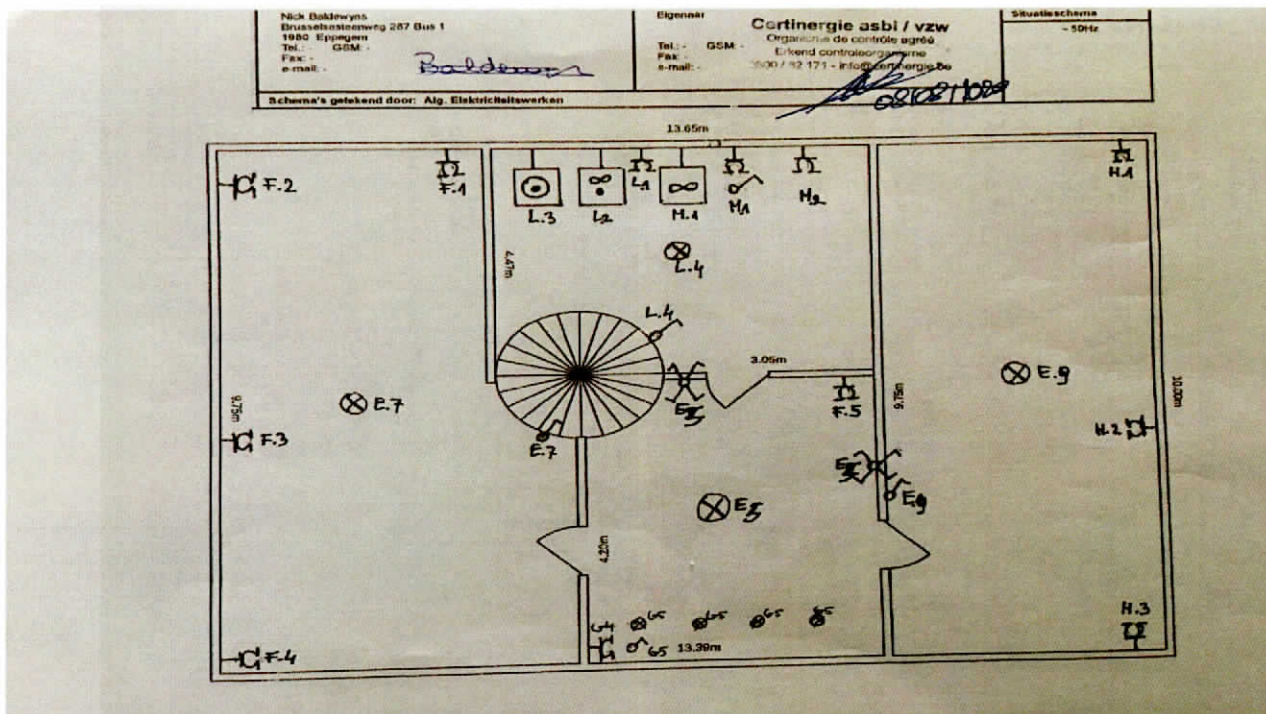 Nick Baldewyns
Brusselsesteenweg 287 Bus 1
1980 Eppegem
Tel.: - GSM: -
Fax: -
e-mail: -
Baldewyns
Schema's getekend door: Alg. Elektriciteitswerken
Eigenaar
Tel.: - GSM: -
Fax: -
e-mail: -
Certinergie asbl / vzw
Organisme de contrôle agréé
Erkend controleorganisme
info@certinergie.be
Situatieschema
~ 50Hz
13.65m
F.2
F.1
L.3
L2
L1
M.1
M1
M2
H.1
4.47m
L.4
L.4
3.05m
E.9
10.00m
9.75m
E.7
F.5
9.75m
F.3
E.7
H.2
E.9
E5
4.20m
G5
G5
G5
G5
H.3
F.4
G5
13.39m